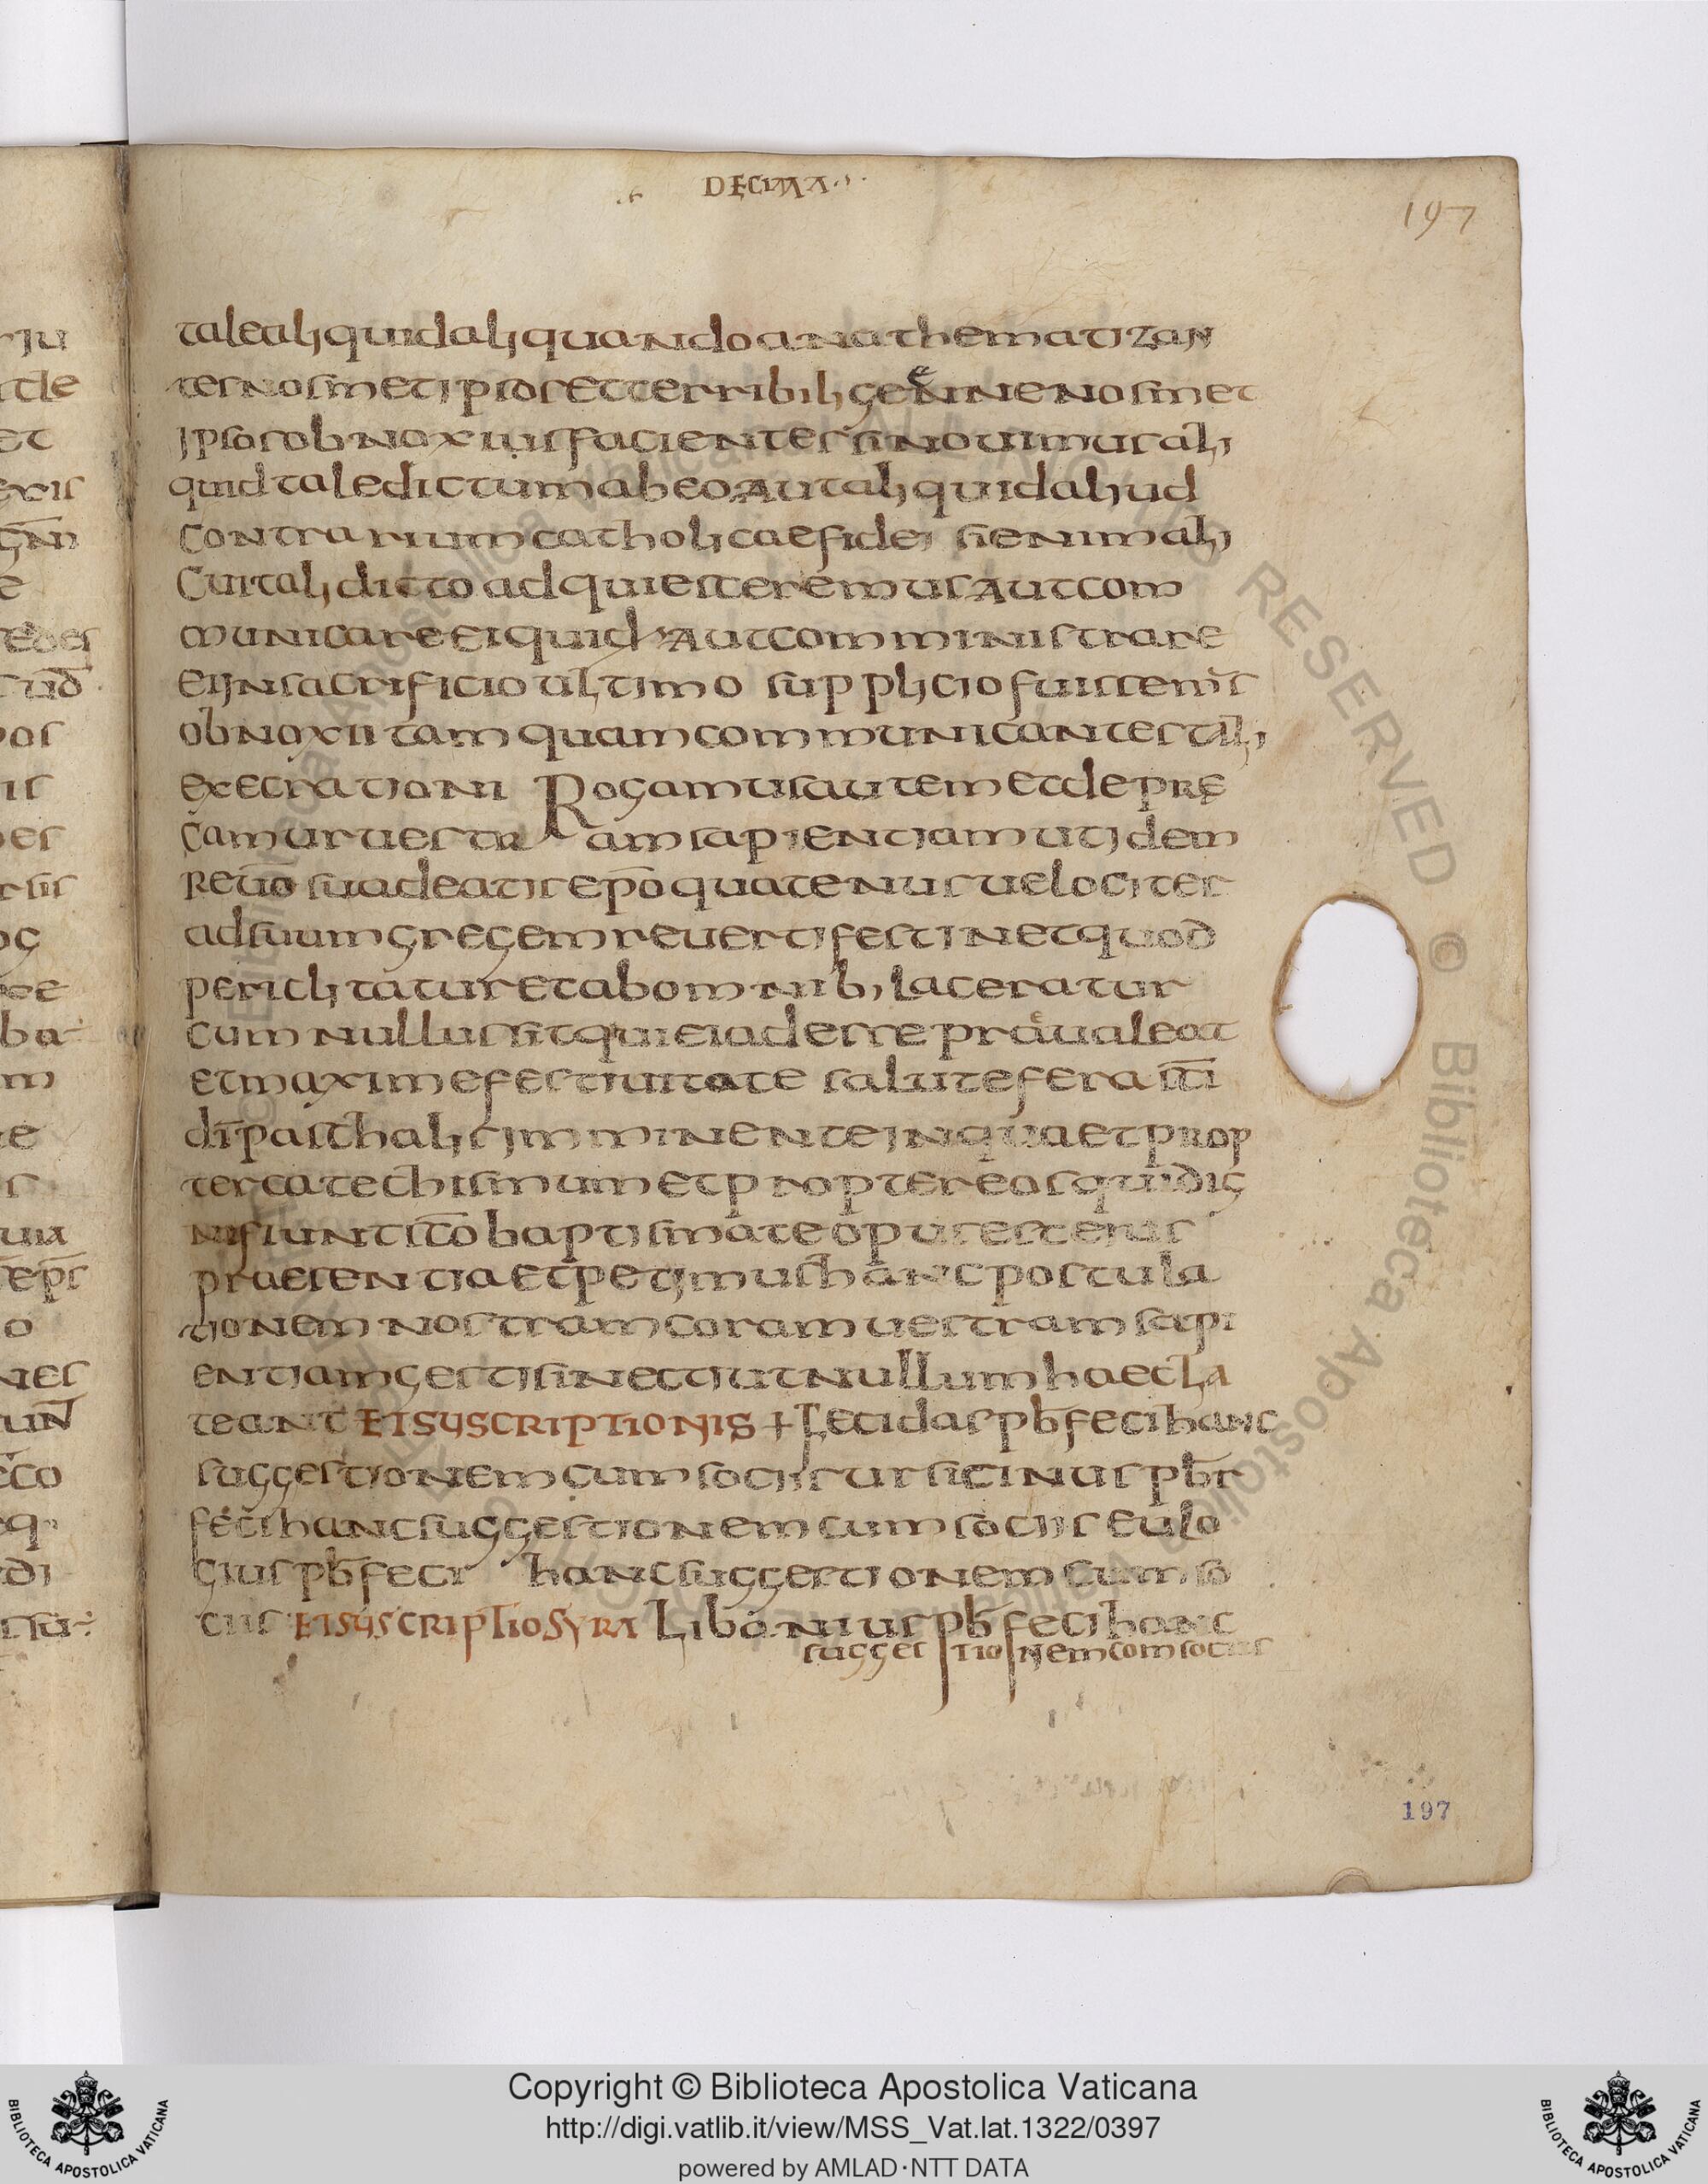 DECIMA
197
tale aliquid aliquando anathematizan
tes nosmetipsos et terribili gehenne nosmet
ipsos obnoxius facientes si novimus ali
quid tale dictum ab eo aut aliquid aliud
contrarium catholicae fidei si enim ali
cui tali dicto adquiesceremus aut com
municare ei quid aut comministrare
ei in sacrificio ultimo supplicio fuissem̄s
obnoxii tamquam communicantes tali
execrationi Rogamus autem et depre
camur vestram sapientiam uti dem
reuō suadeatis ep̄o quatenus velociter
ad suum gregem reverti festinet quod
periclitatur et ab omnib, laceratur
cum nullus sit qui ei adesse praevaleat
et maxime festivitate salutefera sc̄i
dī paschalis imminente in qua et prop
ter catechismum et propter eos qui dig
ni fiunt sc̄o baptismate opus est eius
praesentia et petimus hanc postula
tionem nostram coram vestram sapi
entiam gestis inecti ut nullum haec la
teant ET SUSCRIPTIONIS + Lecidas pb̄ feci hanc
suggestionem cum sociis ursicinus pb̄r
feci hanc suggestionem cum sociis Eulo
gius pb̄ feci hanc suggestionem cum so
ciis ET SUSCRIPTIO SYRA Libanius pb̄ feci hanc
suggestionem com sociis
197
Copyright © Biblioteca Apostolica Vaticana
http://digi.vatlib.it/view/MSS_Vat.lat.1322/0397
powered by AMLAD·NTT DATA
BIBLIOTECA APOSTOLICA VATICANA
BIBLIOTECA APOSTOLICA VATICANA